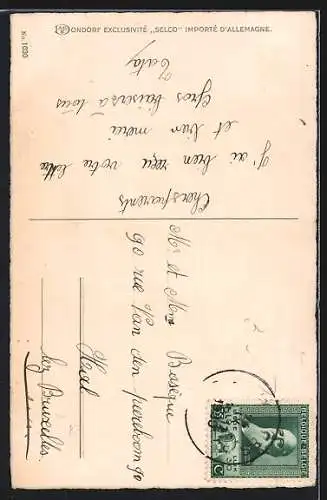 ONDORF EXCLUSIVITÉ „SELCO" IMPORTÉ D'ALLEMAGNE.
No. 1030
Chers parents
J'ai bien reçu votre lettre
et bon merci
Gros baisers à tous
Taty
Mr et Mme Basique
90 rue Van den peereboom 90
Heal
lez Bruxelles.
BELGIQUE·BELGIË